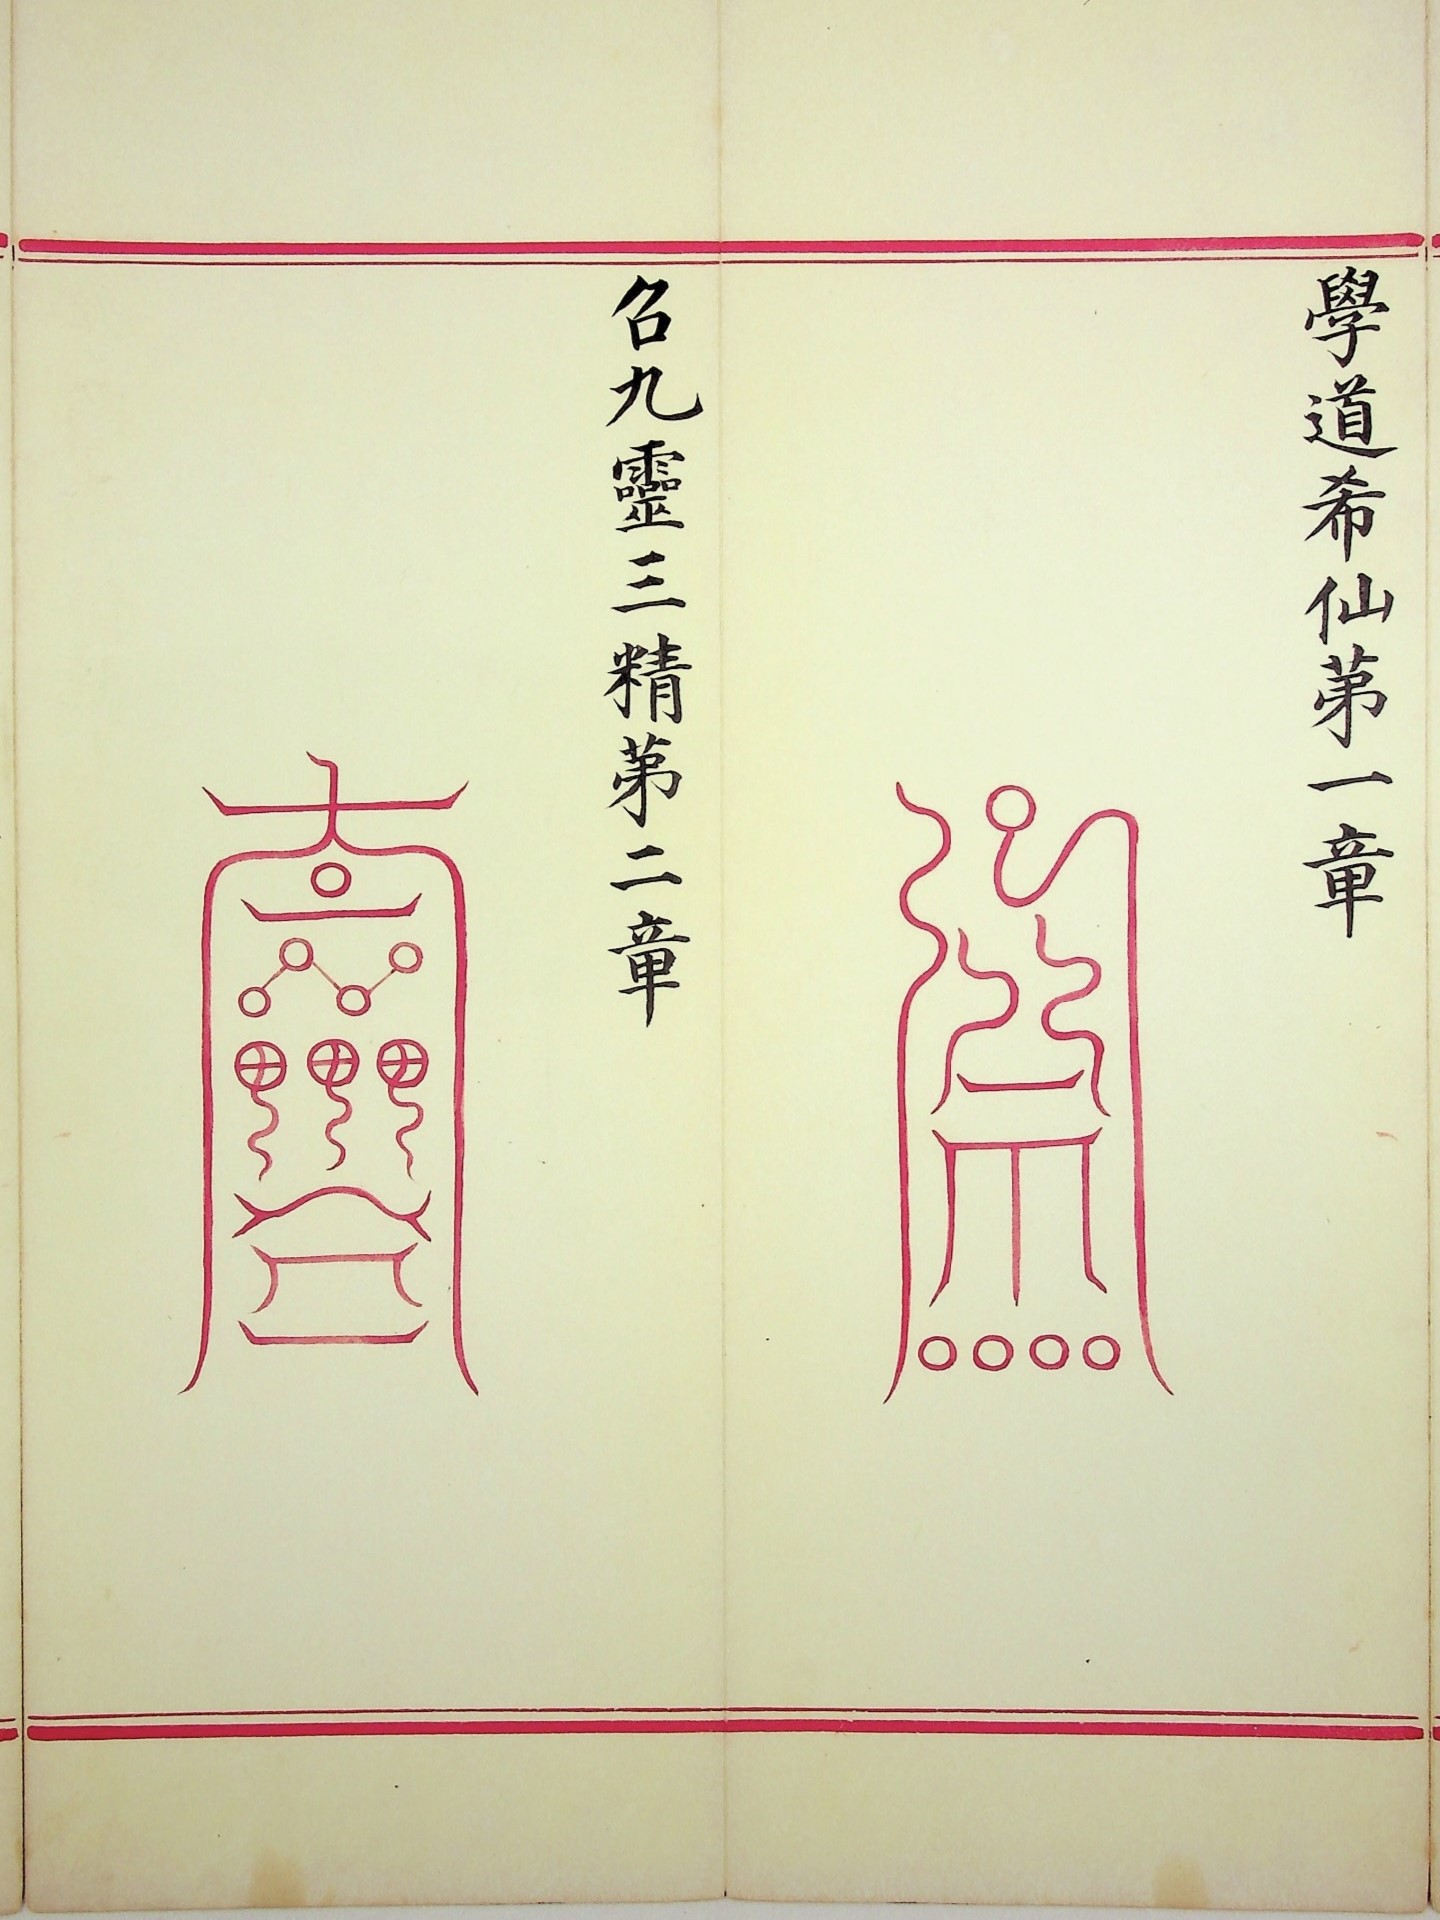 學道希仙苐一章
召九靈三精苐二章